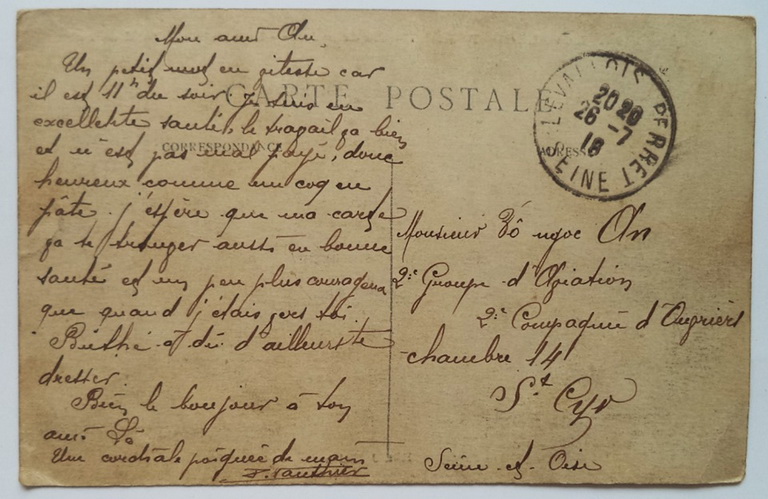 CARTE POSTALE
CORRESPONDANCE
ADRESSE
LEVALLOIS PERRET
20 20
26 -7
18
SEINE
Mon ami An,
Un petit mot en vitesse car
il est 11h du soir, je suis en
excellente santé, le travail va bien
et n'est pas mal payé, donc
heureux comme un coq en
pâte. j'espère que ma carte
va te trouver aussi en bonne
santé et un peu plus courageux
que quand j'étais vers toi.
a dû d'ailleurs te
dresser.
Bien le bonjour à ton
ami Lê
Une cordiale poignée de main
Monsieur Võ ngoc An
2e Groupe d'Aviation
2e Compagnie d'Ouvriers
chambre 14
St Cyr
Seine et Oise